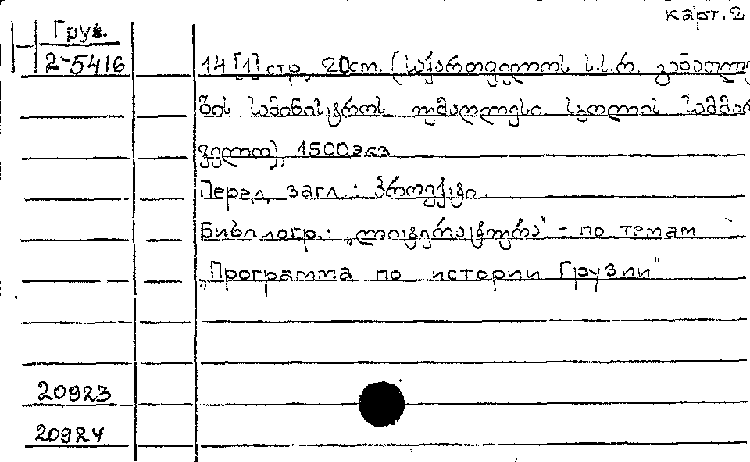 карт. 2
Груз.
2-5416
14 [1] стр, 20см. (საქართველოს ს.ს.რ. განათლე
ბის სამინისტროს. უმაღლესი სკოლის სამმარ
ველო), 1500 экз
Перед загл.: პროექტი.
Библиогр.: „ლიტერატურა" - по темам
„Программа по истории Грузии"
20923
20924